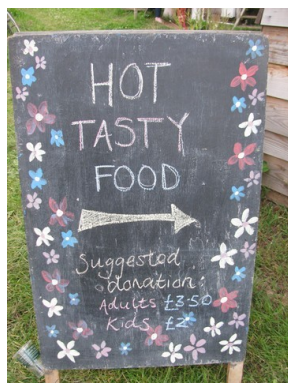 HOT
TASTY
FOOD
Suggested
donation:
Adults £3-50
Kids £2